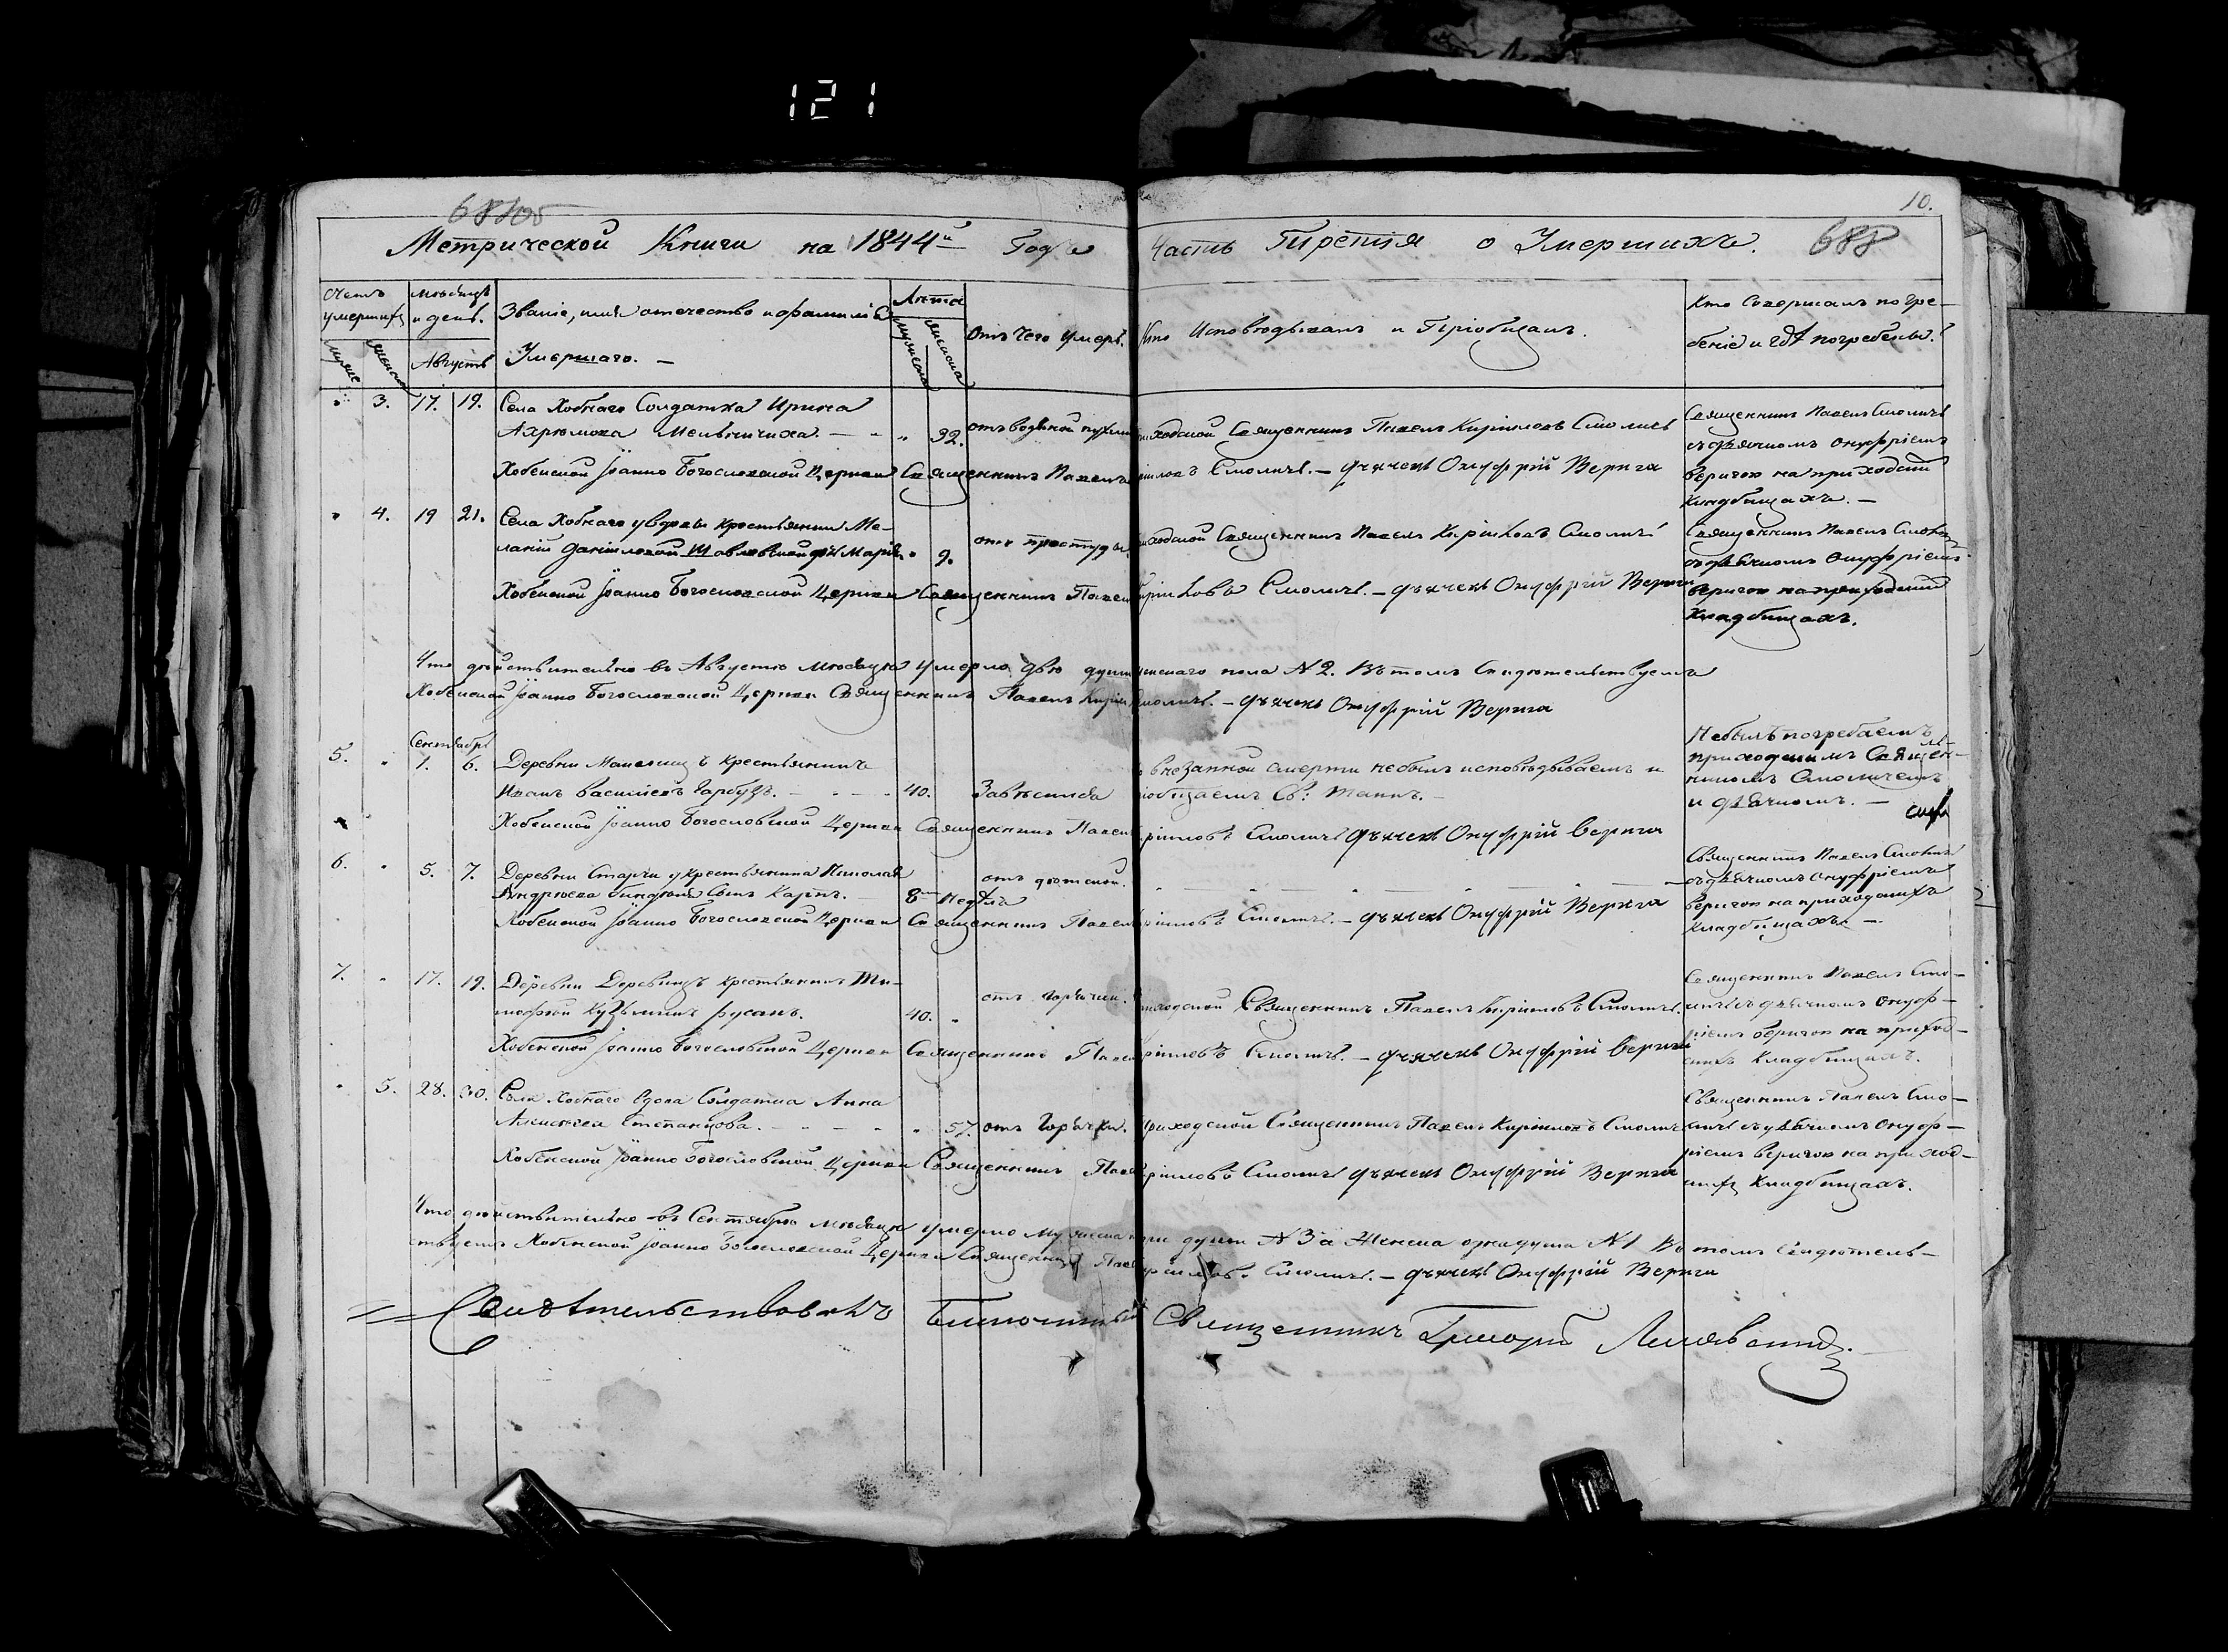 121
10.
688
Метрической Книги на 1844й Годъ Часть Третія о Умершихъ.
Счетъ умершихъ
мѣсяцъ и день.
Августъ
Званіе, имя отечество и фамилія
Умершаго. —
Лѣта
Отъ чего умеръ.
Кто Исповѣдывалъ и Пріобщалъ.
Кто Совершалъ погре-
беніе и гдѣ погребены.
3. 17. 19. Села Хобнаго Солдатка Ирина
Мельничиха. — 32. отъ водяной
приходской Священникъ Павелъ Кириловъ Смоличъ
Священникъ Павелъ Смоличъ
съ дьячкомъ Онуфріемъ
Веригою на приходскихъ
кладбищахъ. —
Хобенской Іоанно Богословской Церкви Священникъ Павелъ Кириловъ Смоличъ. — дьячекъ Онуфрій Верига
4. 19 21. Села Хобнаго у вдовы крестьянки Ме-
ланіи Даніиловой дочь Марія 9. отъ простуды.
приходской Священникъ Павелъ Кириловъ Смоличъ
Священникъ Павелъ Смоличъ
съ дьячкомъ Онуфріемъ
Веригою на приходскихъ
кладбищахъ.
Хобенской Іоанно Богословской Церкви Священникъ Павелъ Кириловъ Смоличъ. — дьячекъ Онуфрій Верига
Что дѣйствительно въ Августѣ мѣсяцѣ умерло двѣ души женскаго пола №2. Въ томъ Свидѣтельствуемъ
Хобенской Іоанно Богословской Церкви Священникъ Павелъ Кириловъ Смоличъ. — дьячекъ Онуфрій Верига
Сентябрь
5. 1. 6. Деревни крестьянинъ
Иванъ Васильевъ Гарбузъ. — 40. Завѣсился
внезапной смерти не былъ исповѣдываемъ и
пріобщаемъ Св: Таинъ. —
Не былъ погребаемъ
приходскимъ Священ-
никомъ Смоличемъ
и дьячкомъ. —
Хобенской Іоанно Богословской Церкви Священникъ Павелъ Кириловъ Смоличъ дьячекъ Онуфрій Верига
6. 5. 7. Деревни у крестьянина Николая
Андреева Сынъ Карпъ. — 8 недѣль отъ дѣтской.
Священникъ Павелъ Смоличъ
съ дьячкомъ Онуфріемъ
Веригою на приходскихъ
кладбищахъ —
Хобенской Іоанно Богословской Церкви Священникъ Павелъ Кириловъ Смоличъ. — дьячекъ Онуфрій Верига
7. 17. 19. Деревни Деревинъ крестьянинъ Ти-
мофей Кузьминъ Русанъ. 40. отъ горячки.
приходской Священникъ Павелъ Кириловъ Смоличъ.
Священникъ Павелъ Смо-
личъ съ дьячкомъ Онуф-
ріемъ Веригою на приход-
скихъ кладбищахъ.
Хобенской Іоанно Богословской Церкви Священникъ Павелъ Кириловъ Смоличъ. — дьячекъ Онуфрій Верига
5. 28. 30. Села Хобнаго вдова Солдатка Анна
Алексѣева Степанцова. — 57. отъ горячки.
приходской Священникъ Павелъ Кириловъ Смоличъ
Священникъ Павелъ Смо-
личъ съ дьячкомъ Онуф-
ріемъ Веригою на приход-
скихъ кладбищахъ.
Хобенской Іоанно Богословской Церкви Священникъ Павелъ Кириловъ Смоличъ дьячекъ Онуфрій Верига
Что дѣйствительно въ Сентябрѣ мѣсяцѣ умерло мужеска три души №3 а Женска одна душа №1 Въ томъ Свидѣтель-
ствуемъ Хобенской Іоанно Богословской Церкви Священникъ Павелъ Кириловъ Смоличъ. — дьячекъ Онуфрій Верига
Свидѣтельствовалъ Благочинный Священникъ Григорій